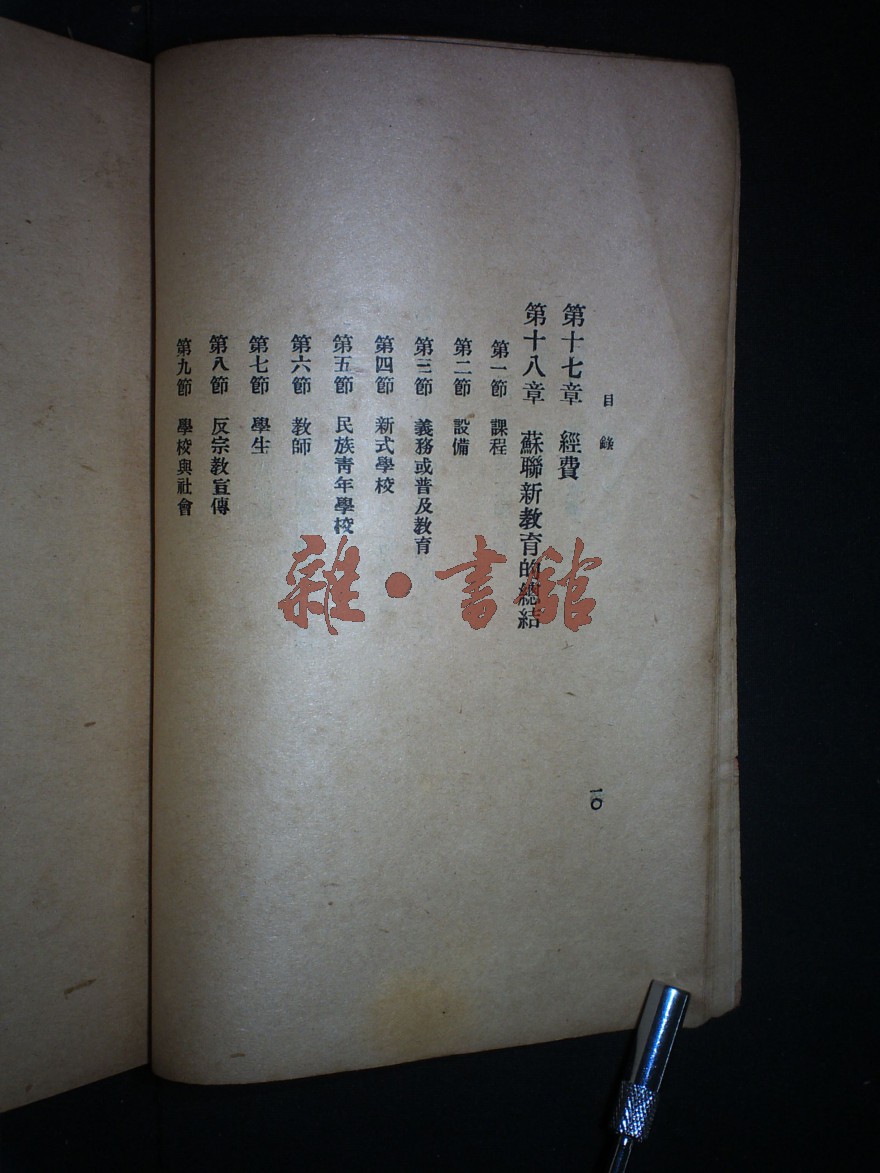 目錄
第十七章 經費
第十八章 蘇聯新教育的總結
第一節 課程
第二節 設備
第三節 義務或普及教育
第四節 新式學校
第五節 民族靑年學校
第六節 教師
第七節 學生
第八節 反宗教宣傳
第九節 學校與社會
一〇
雜·書館